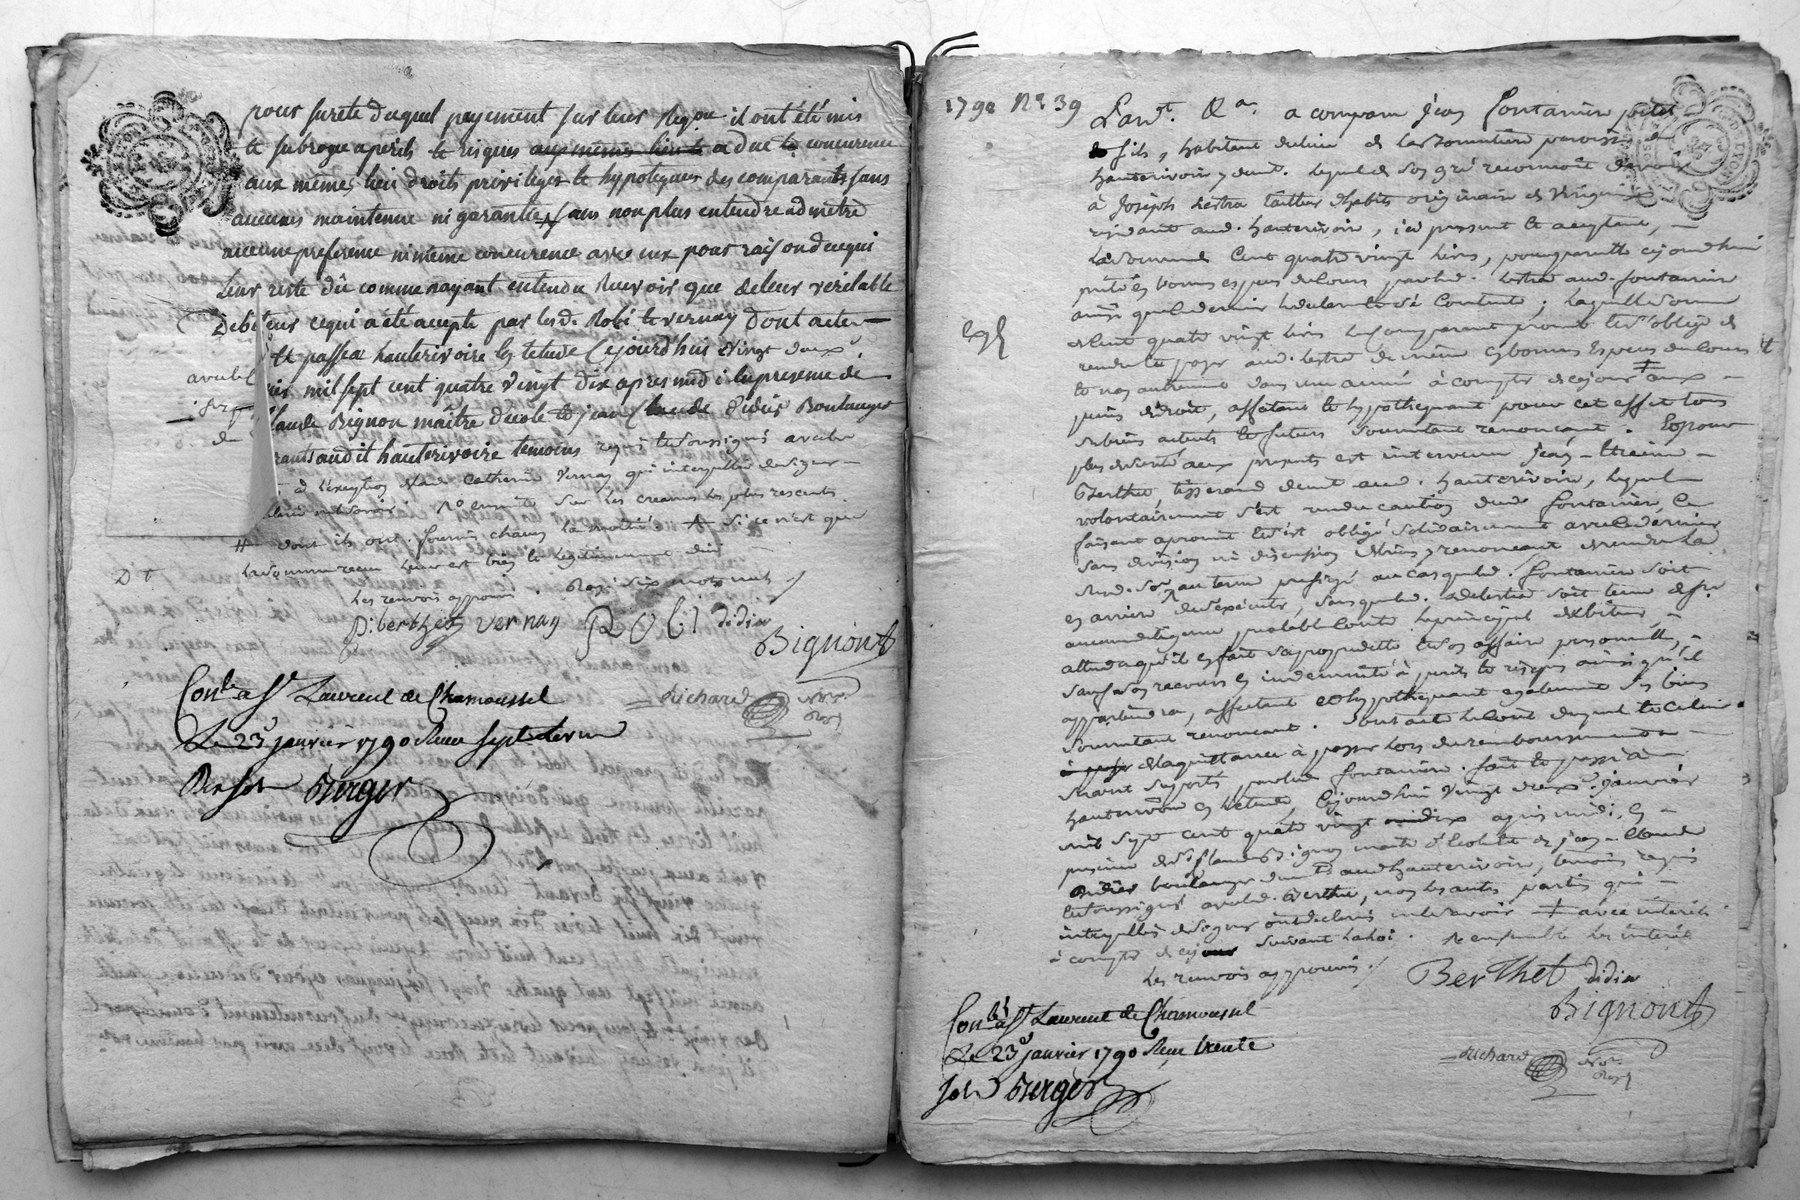 pour sureté duquel payement sur leur requ il ont été mis
et subrogé a perils et risques aux mêmes lieu et a due et concurence
aux mêmes lieu droits privileges et hypoteques des comparants sans
aucunes maintenue ni garantie sans non plus entendre admetre
aucune preference ni même concurence avec eux pour raison de ce qui
leur reste dû comme nayant entendu recevoir que de leur véritable
Debiteur ce qui a été accepté par lesd. Robi et vernay Dont acte
et passé a hauterivoire es letude Cejourdhui vingt deux
mil sept cent quatre vingt dix apres midi en presence de
Claude Bignon maître d'ecole et jean Claude Didier Boulanger
audit hauterivoire temoins requis et soussignés avec
a l'exception de lade Catherine Vernay qui interpellée de signer
sur les creances les plus rescents
dont ils ont fournis chacun la moitié si ce n'est que
la somme recue leur est bien et legitimement due
Dt
les renvois approuvés. Rayé six mots nuls
P: berthet vernay RObi didier
Bignon
Richard Nore. Royl
Conlé a St Laurent de Chamousset
Le 23 janvier 1790 Recu sept livres
Berger
1790 N° 39
Pardt. &a. a comparu jean fontaniere
fils, habitant du lieu de paroisse
hauterivoire, lequel de son gré reconnoit devoir
à joseph Lestra tailleur d'habits originaire de
residant aud. hauterivoire, ici present et acceptant,
La somme Cent quatre vingt livres, pour cejourdhui
prêtés es bonnes especes de cours par led. Lestra aud. fontaniere
ainsi que le dernier le declare et s'en contente; laquelle somme
egl
de Cent quatre vingt livres le comparant promet et s'oblige de
rendre et payer aud. Lestra de même es bonnes especes de cours
et non autrement dans une année à compter de cejour
de droit, affectant et hypothequant pour cet effet tous
ses biens presents et futurs soumettant renoncant. Et pour
plus de sureté aux presents est intervenu jean Etienne
Berthet, tisserand demt. aud. hauterivoire, lequel
volontairement s'est rendu caution dud. fontaniere, ce
faisant a promis et s'est obligé solidairement avec le dernier
sans division ni discussion de biens y renoncant de rendre la
susd. Se. au terme prefigé au cas que led. fontaniere soit
es arriere de l'executer, sans que led. Lestra soit tenu de faire
aucune diligence prealable contre le principal debiteur,
attendu qu'il en fait sa propre dette et son affaire personnelle,
sauf son recours es indemnité à perils et risques ainsi qu'il
appartiendra, affectant et hypothequant egalement ses biens
soumettant renoncant. Dont acte le coût duquel et celui
de la quittance à passer lors du remboursement
seront suportés par led. fontaniere. fait et passé à
hauterivoire es l'etude, Cejourdhui vingt deux janvier
mil sept cent quatre vingt dix apres midi, es
presence de sr. Claude Bignon maitre d'ecole et de jean Claude
Didier boulanger demts. aud. hauterivoire, temoins requis
et soussignés avec led. Berthet, non les autres parties qui
interpellées de signer ont declaré ne le savoir ‡ avec interets
à compter de cejour suivant la loi. ‡ ensemble les interêts
les renvois approuvés
BerThet didier
Bignon
Richard Nore. Royl
Conlé a St Laurent de Chamousset
Le 23 janvier 1790 Recu trente
sols Berger